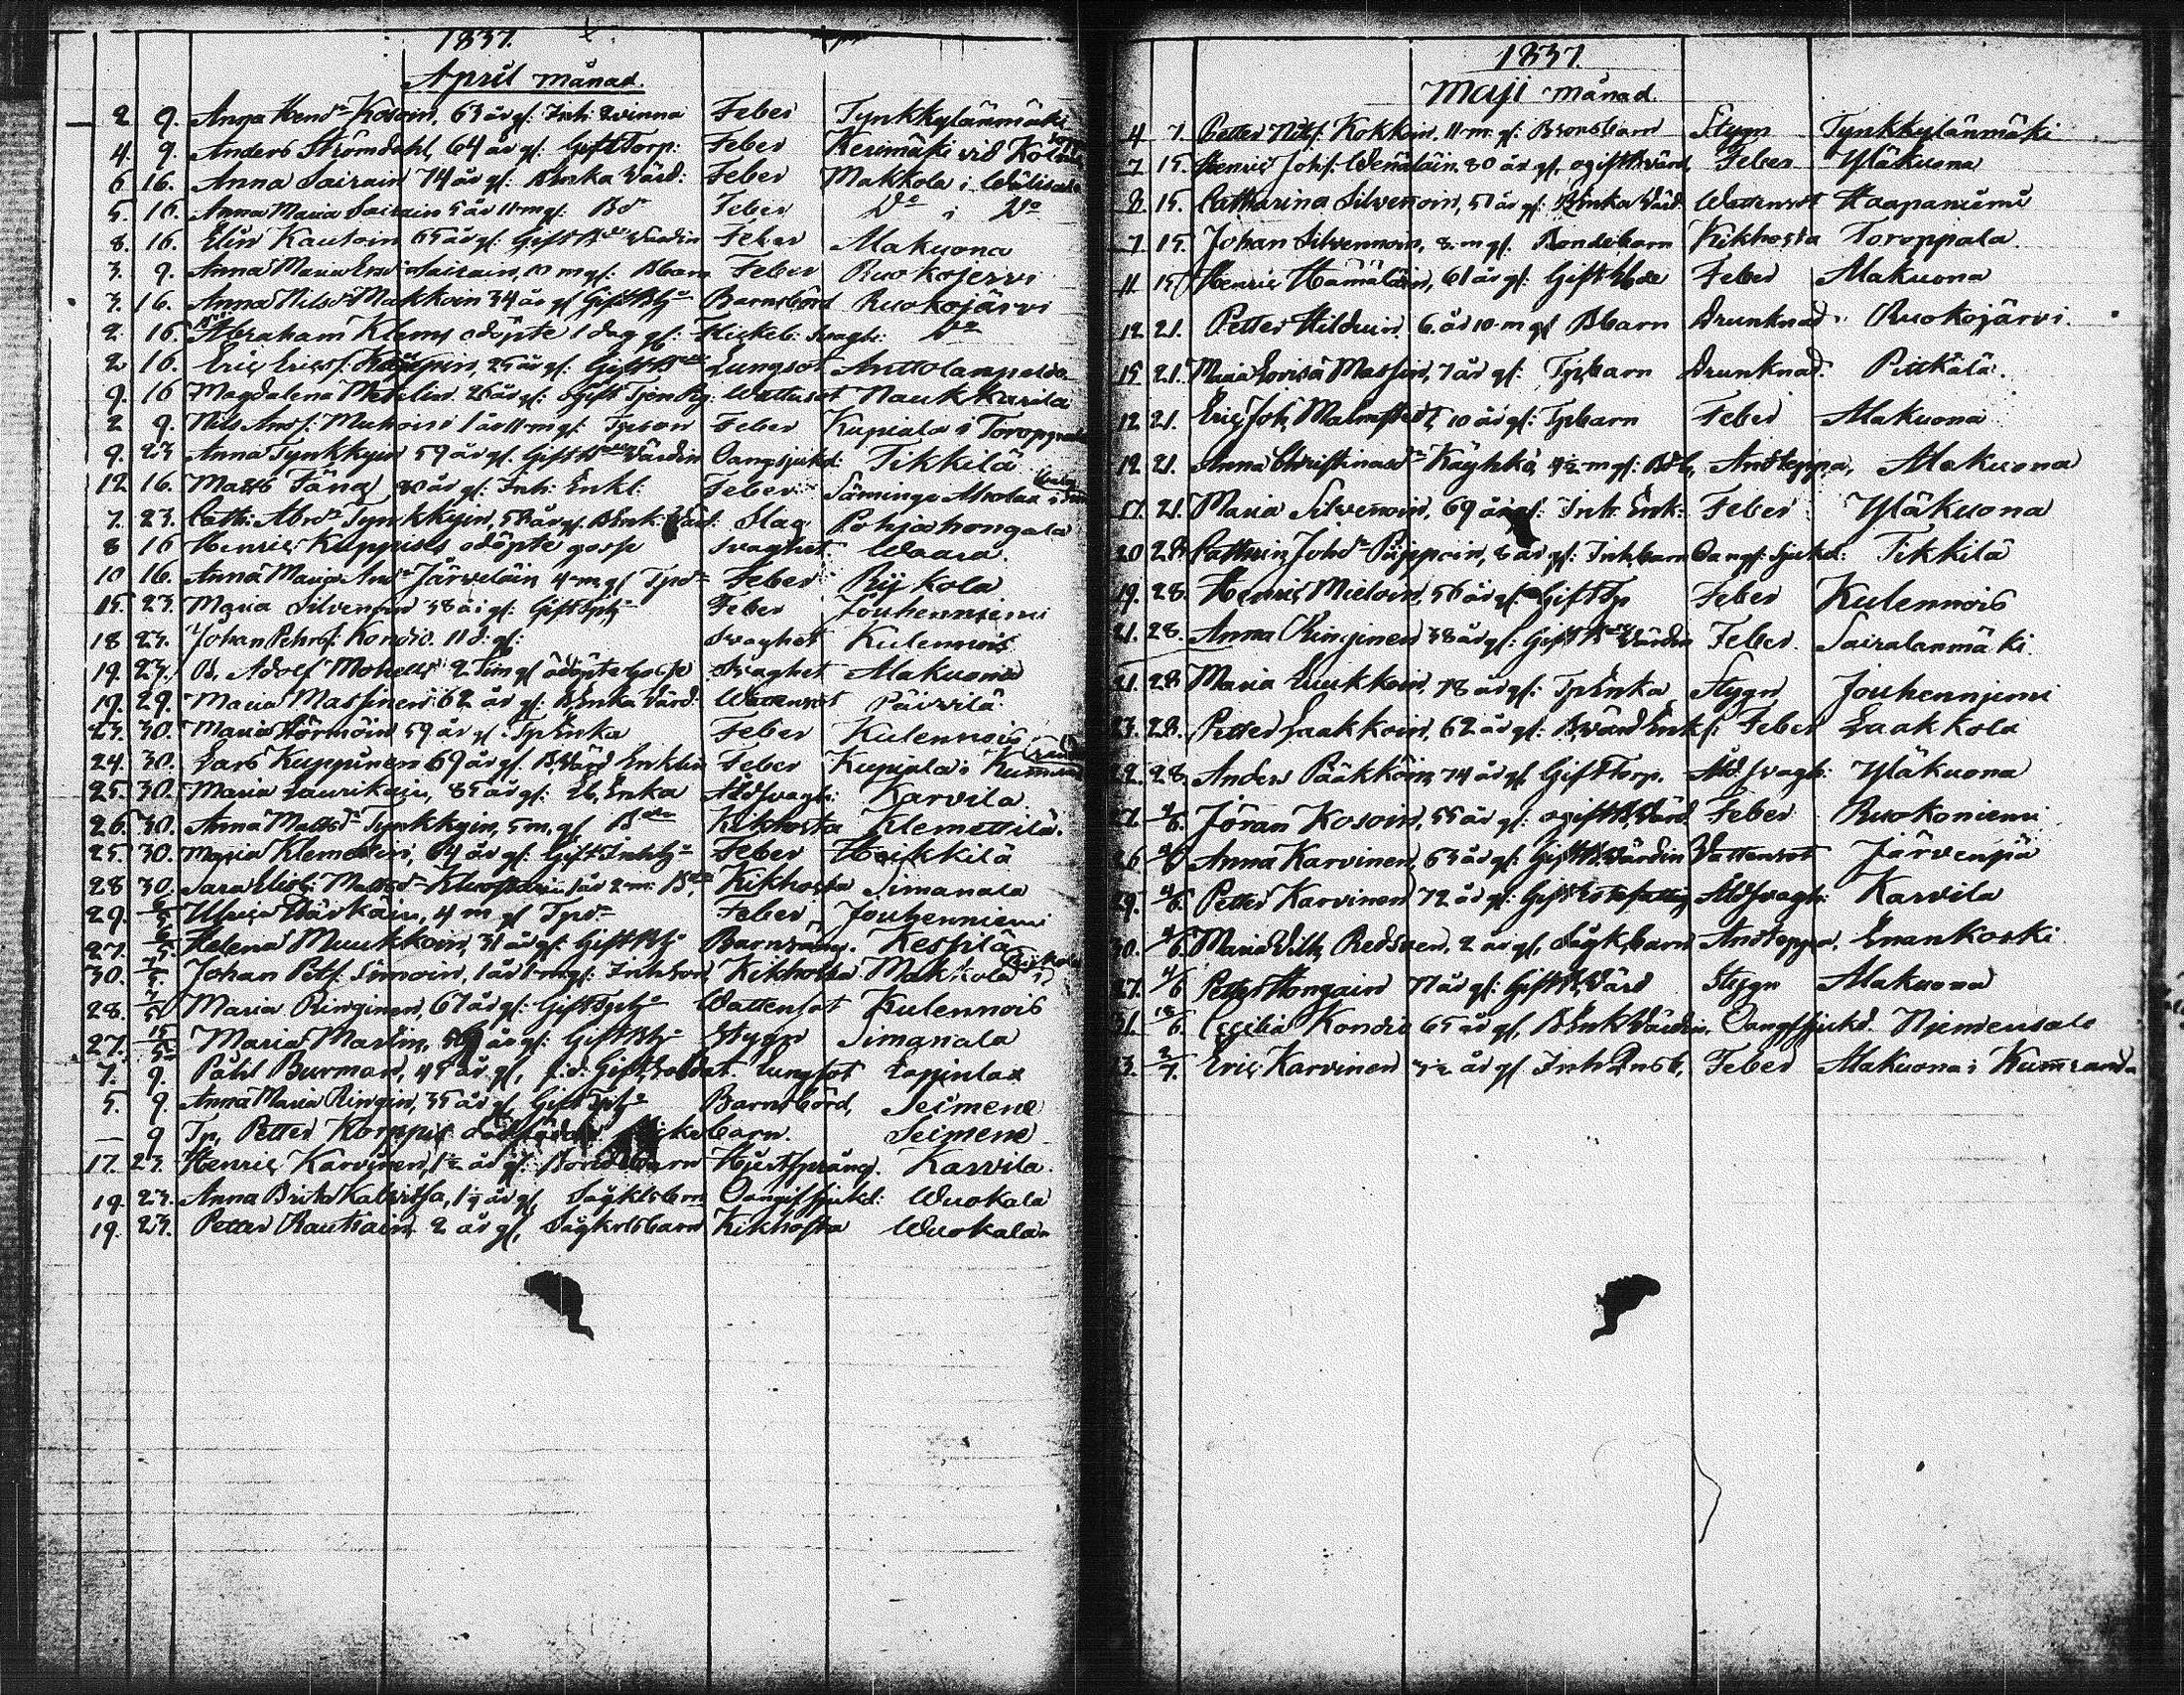 1837.
April månad.
2 9. Anna Hend:dr Kosoin, 63 år gl: Inh: Qvinna Feber Tynkkylänmäki
4. 9. Anders Strömdahl, 64 år gl: Gift Torp: Feber Kerimäki vid
6 16. Anna Sairain 74 år gl: BEnka Värd: Feber Makkola i
5. 16. Anna Maria Sairain 5 år 11 m gl: Bdr Feber Do i Do
8. 16. Elin Kautoin 65 år gl: Gift Värdin Feber Makuona
3. 9. Anna Maria Sairain, 10 m gl: Bbarn Feber Ruokojervi
3. 16. Anna Nilsdr Makkoin 34 år gl Gift Bh Barnsbörd Ruokojärvi
2. 16. Abraham Klems odöpte 1 dag gl: Flickeb: Svagh: Do
2 16. Eric Ericss: 25 år gl: Gift Lungsot Anttolanpelda
9. 16 Magdalena 26 år gl: Ogift Tjen Pig Wattusot Naukkarila
2 9. Nils Ands: Muhoin 1 år 11 m gl: Tpson Feber Kupiala i Toroppala
9. 23 Anna Tynkkyin 59 år gl. Gift Värdin Oangsjukd: Tikkilä
12 16. Matts Täna 80 år gl: Inh: Enkl: Feber Säminge
7. 23. Cath: Abrdr Tynkkyin, 58 år gl. BEnk: Värd: Slag Pohjahongala
8 16 Henric Kuppises odöpte gosse Svaghet. Waara.
10 16. Anna Maria Anddr Järveläin 4 m gl Tpdr Feber Rijkola
15. 23. Maria Silvennoin 38 år gl: Gift Tph Feber Jouhenniemi
18 23. Johan Pehrs: Kondio. 11 d: gl: Svaghet Kulennois
19. 23. B. Adolf 2 tim gl odöpte gosse Svaghet Makuona
19. 29. Maria Massinen 62 år gl: BEnka Värd: Wattensot Päivilä
23. 30. Maria Hörmöin 59 år gl: TpEnka Feber Kulennois
24. 30. Lars Kuppinen 69 år gl. BVärd Enklin Feber Kupiala i
25. 30. Maria Laurikain, 85 år gl: Enka Åldsvagh: Karvila
26. 30. Anna Mattsdr Tynkkyin, 5 m, gl, Bdr Kikhosta Klemettilä.
25. 30. Maria Klemetin, 64 år gl: Gift Inhh Feber Heikkilä
28 30. Sara Elisb: Mattsdr 1 år 2 m: Bdr Kikhosta Simanala
29. 6/5 Ulrica Härkäin, 4 m gl Tpdr Feber Jouhenniemi
27. 6/5. Helena Muukkoin, 31 år gl: Gift Bh Barnsäng. Keskilä
30. 7/5. Johan Pets: Simoin, 1 år gl: Inhson, Kikhosta Makkola i
28. 7/5 Maria Ringinen, 67 år gl: Gift Tph Wattensot Kulennois
27. 15/5 Maria Martin, år gl: Gift Bh Stygn Simanala
7. 9. Påhl Burman, 49 år gl, f.d. Gift Soldat. Lungsot Lapinlax
5. 9. Anna Maria Ringin, 35 år gl, Gift Tph Barnsbörd, Seimene
— 9 Tp, Petter Korppis barn. Seimene
17. 23. Henric Karvinen, 1½ år gl: Bondebarn Hjertspräng. Karvila.
19. 23. Anna Brita Kalvitsa, 1½ år gl, Oangif sjukd: Wuokala
19. 23. Petter Rautiain 2 år gl, Kikhosta Wuokala

1837.
Maji månad.
4 7. Petter Nils: Kokkoin, 11 m: gl: Bondbarn Stygn Tynkkylänmäki
7 15. Henric Johs: Wenäläin, 80 år gl, ogift BVärd, Feber Yläkuona
8. 15. Catharina Silvenoin, 51 år gl: BEnka Värd. Wattensot Haapaniemi
7 15. Johan Silvennoin, 8 m gl. Bondebarn Kikhosta Toroppala
11. 15 Henric Hämäläin, 61 år gl: Gift Feber Makuona
12. 21. Petter Hilduin, 6 år 10 m gl Bbarn Drunknad. Ruokojärvi.
15. 21. Maria Lovisa Massin, 7 år gl: Tpbarn Drunknad. Pitkälä.
12 21. Eric Joh, Malmstedt, 10 år gl: Tpbarn Feber Makuona
12. 21. Anna Christina Käyhkö, 4½ m gl: Andteppa, Makuona
17. 21. Maria Silvenoin, 69 år gl: Inh: Enk: Feber Yläkuona
20 28. Cathrin, Johdr Pippoin, 2 år gl: Inh,barn Oangf: Sjukd: Tikkilä
19. 28. Henric Mieloin, 56 år gl: Gift Tp Feber Kulennois
21. 28. Anna Ringinen 38 år gl: Gift Värdin Feber. Sairalanmäki
21. 28. Maria Luukkoin, 78 år gl: TpEnka Stygn Jouhenniemi
23. 28. Petter Laakkoin, 62 år gl: BVärd Enkl: Feber Laakkola
22. 28. Anders Pääkköin, 74 år gl, Gift Torp. Åld. svagh: Yläkuona
27. 4/6. Jöran Kosoin, 55 år gl: ogift B,Värd, Feber Ruokoniemi
26 4/6 Anna Karvinen, 63 år gl: Gift B.Värdin Vattensot Järvenpä
29. 4/6. Petter Karvinen 72 år gl: Gift Åldsvagh: Karvila
30. 4/6. Maria Wilh, 2 år gl, Andteppa. Enankoski
27. 4/6 Petter Hongain 77 år gl: Gift B,Värd Stygn Makuona
31. 18/6. Cecilia Kondio 65 år gl, BEnk Värdin, Oangfsjukd. Njemensalo
13. 2/7. Eric Karvinen 3½ år gl Feber Makuona i Kumranda